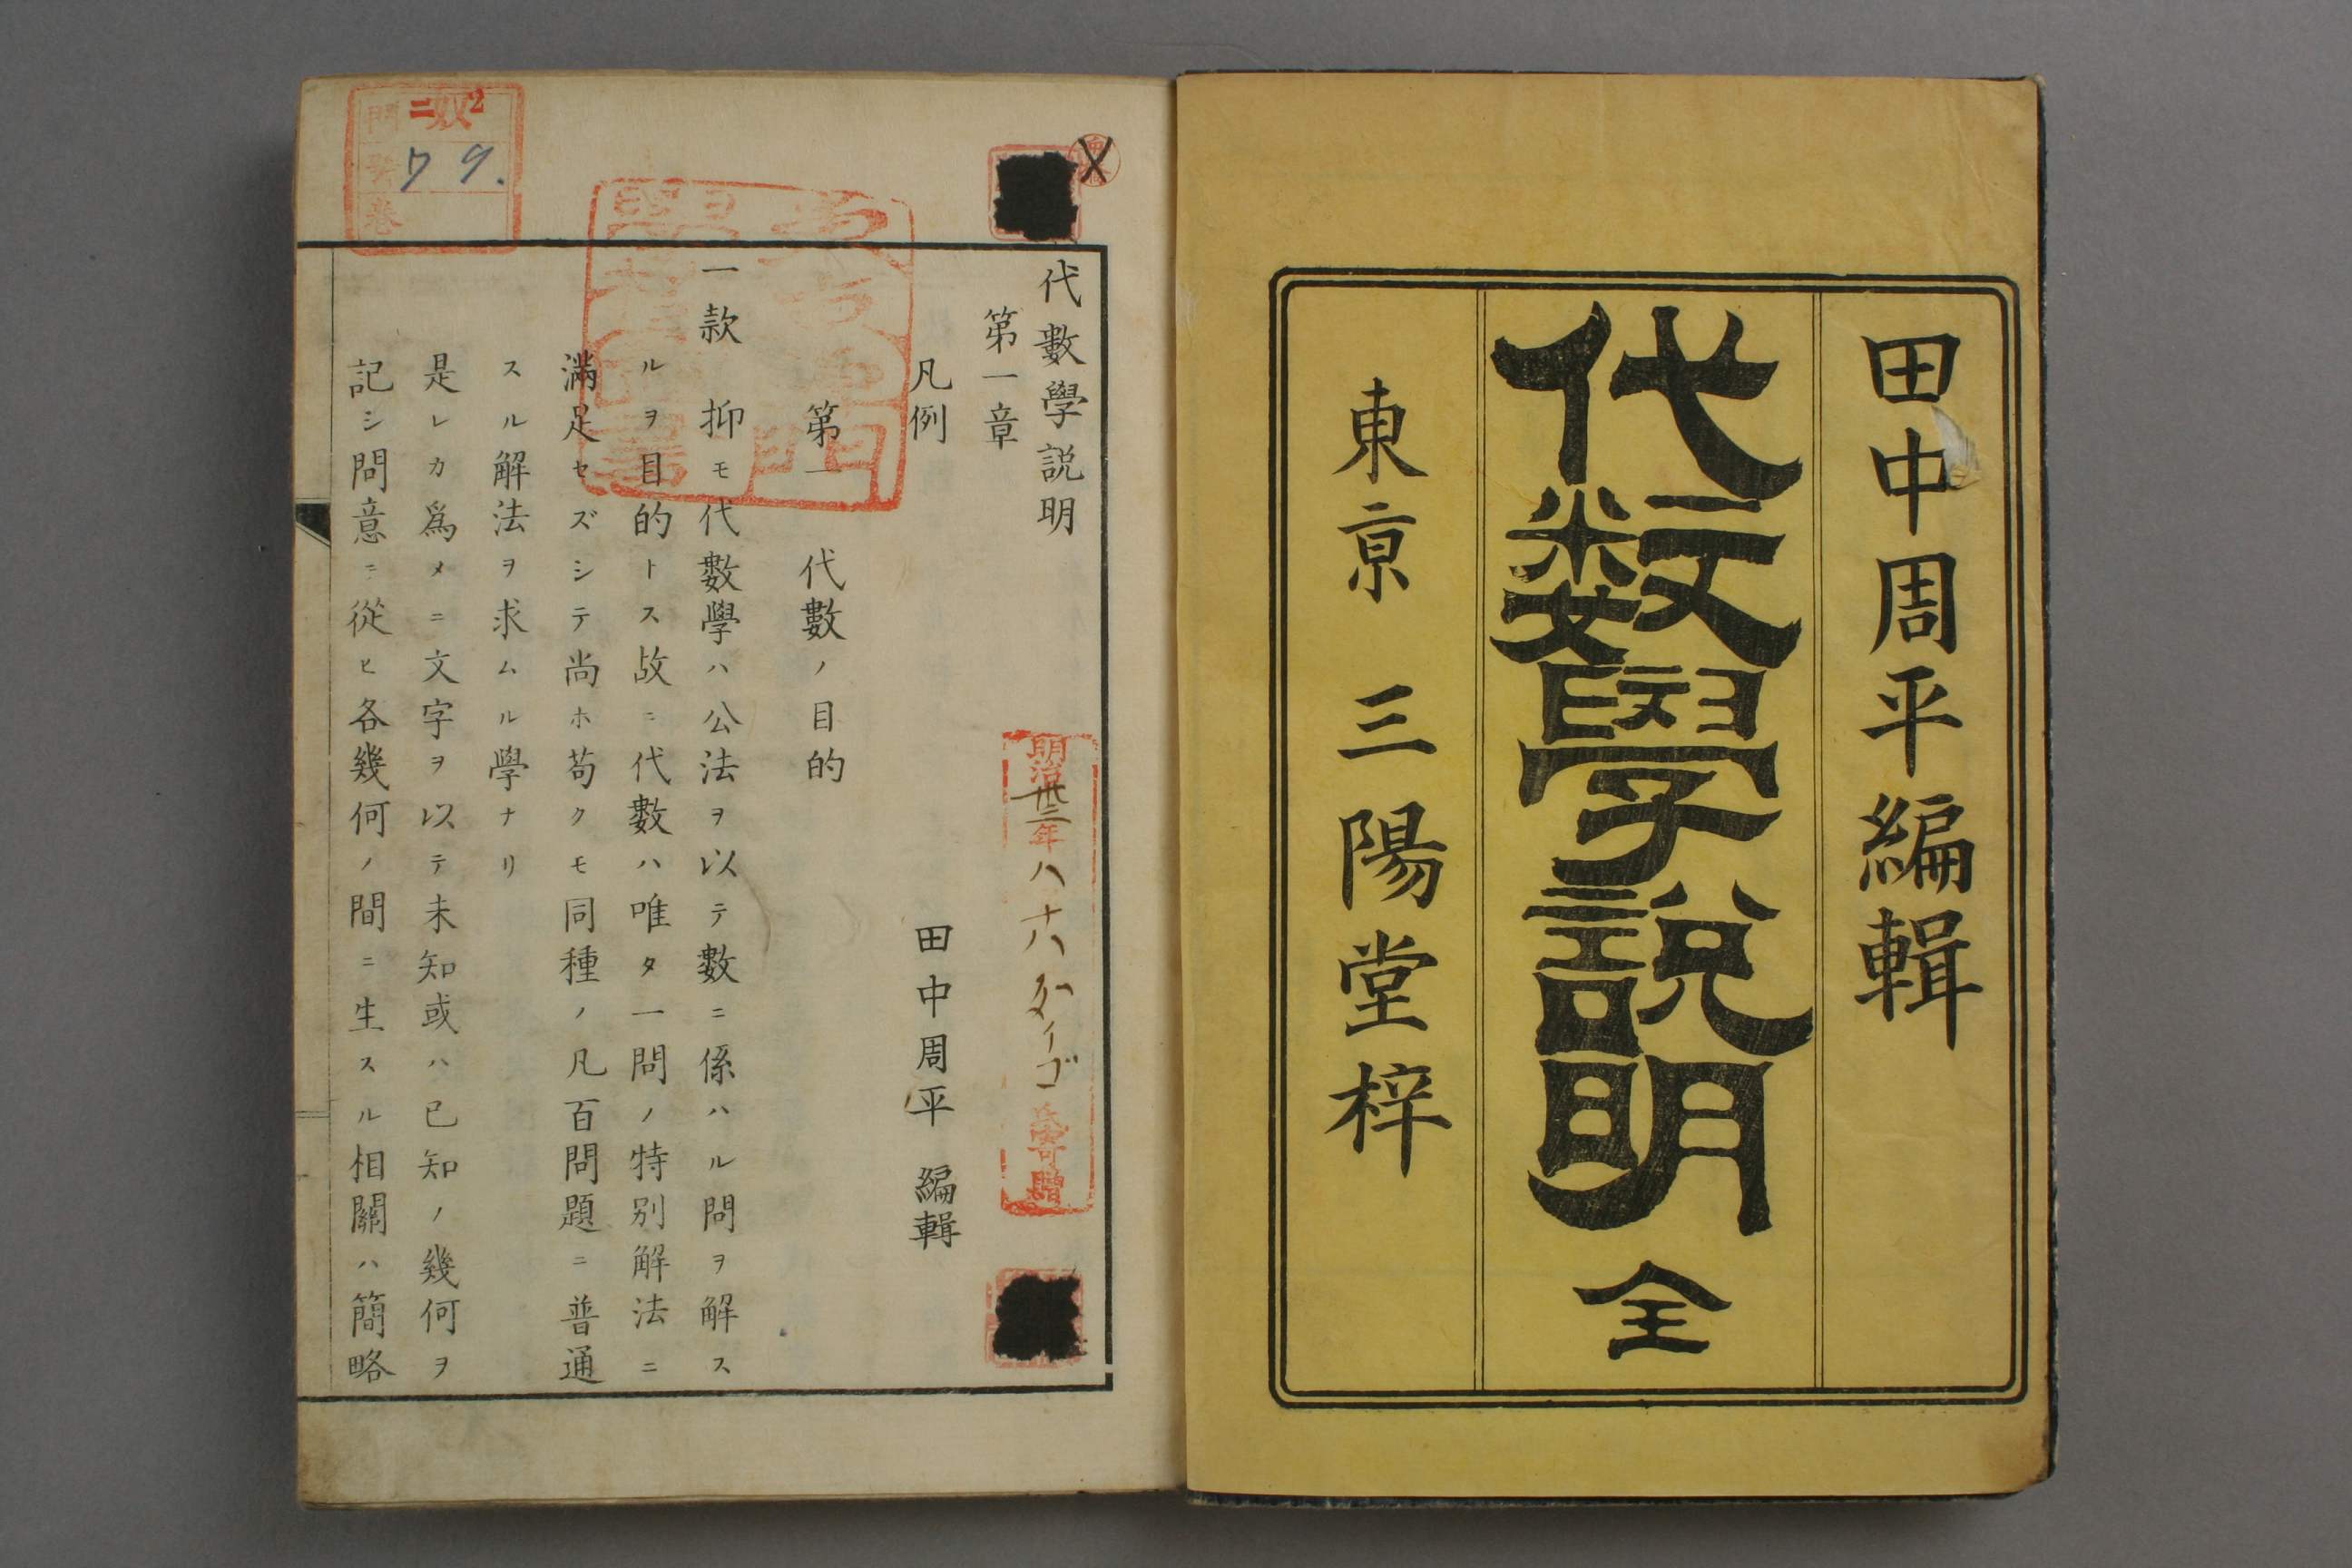 田中周平編輯
代数學說明 全
東京 三陽堂梓
代數學説明
第一章
凡例
田中周平 編輯
第一 代數ノ目的
一款 抑モ代數學ハ公法ヲ以テ數ニ係ハル問ヲ解ス
ルヲ目的トス故ニ代數ハ唯タ一問ノ特別解法ニ
滿足セズシテ尚ホ苟クモ同種ノ凡百問題ニ普通
スル解法ヲ求ムル學ナリ
是レカ爲メニ文字ヲ以テ未知或ハ已知ノ幾何ヲ
記シ問意ニ從ヒ各幾何ノ間ニ生スル相關ハ簡略
明治卅三年
寄贈
門
号
巻
2
79.
X